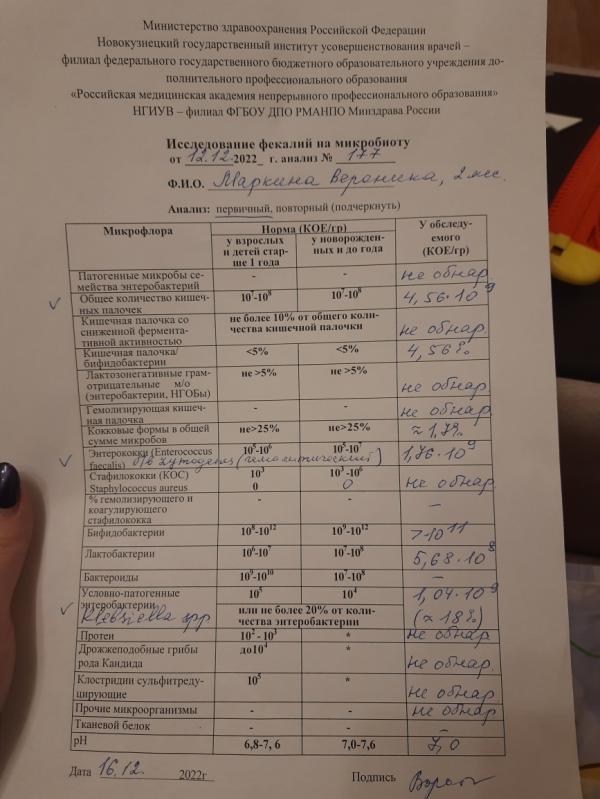 Министерство здравоохранения Российской Федерации
Новокузнецкий государственный институт усовершенствования врачей –
филиал федерального государственного бюджетного образовательного учреждения до-
полнительного профессионального образования
«Российская медицинская академия непрерывного профессионального образования»
НГИУВ – филиал ФГБОУ ДПО РМАНПО Минздрава России
Исследование фекалий на микробиоту
от 12.12. 2022_ г. анализ № 177
Ф.И.О. Маркина Вероника, 2 мес.
Анализ: первичный, повторный (подчеркнуть)
Микрофлора Норма (КОЕ/гр) У обследу-
емого
(КОЕ/гр)
у взрослых у новорожден-
и детей стар- ных и до года
ше 1 года
Патогенные микробы се-
мейства энтеробактерий - - не обнар.
Общее количество кишеч-
ных палочек 10⁷-10⁸ 10⁷-10⁸ 4,56·10⁹
Кишечная палочка со
сниженной фермента-
тивной активностью не более 10% от общего коли-
чества кишечной палочки не обнар.
Кишечная палочка/
бифидобактерии <5% <5% 4,56%
Лактозонегативные грам-
отрицательные м/о
(энтеробактерии, НГОБы) не >5% не >5% не обнар.
Гемолизирующая кишеч-
ная палочка - - не обнар.
Кокковые формы в общей
сумме микробов не>25% не>25% ≈1,7%
Энтерококки (Enterococcus
faecalis) (гемолитический) 10⁵-10⁶ 10⁵-10⁷ 1,76·10⁹
Стафилококки (КОС) 10³ 10³-10⁶
Staphylococcus aureus 0 0 не обнар.
% гемолизирующего и
коагулирующего
стафилококка - - –
Бифидобактерии 10⁸-10¹² 10⁹-10¹² >10¹¹
Лактобактерии 10⁶-10⁷ 10⁷-10⁸ 5,68·10⁸
Бактероиды 10⁹-10¹⁰ 10⁷-10⁸ –
Условно-патогенные
энтеробактерии 10⁵ 10⁴ 1,04·10⁹
Klebsiella spp или не более 20% от коли-
чества энтеробактерии (≈18%)
Протеи 10² - 10³ * не обнар.
Дрожжеподобные грибы
рода Кандида до10⁴ * не обнар.
Клостридии сульфитреду-
цирующие 10⁵ * не обнар.
Прочие микроорганизмы - - не обнар.
Тканевой белок - - –
pH 6,8-7, 6 7,0-7,6 7,0
Дата 16.12. 2022г Подпись